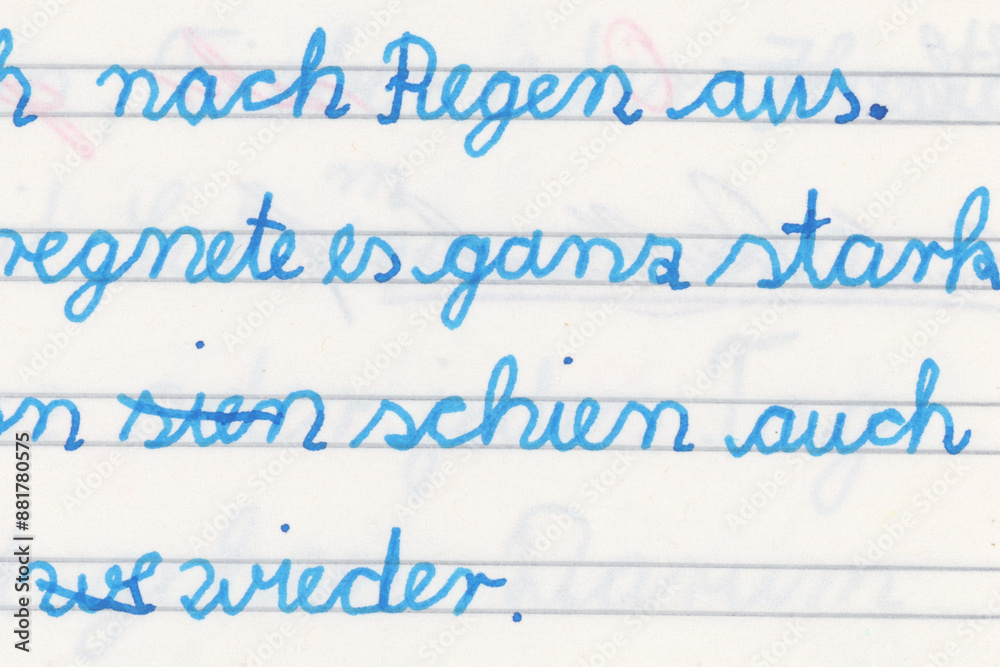 h nach Regen aus.
regnete es ganz stark
n sien schien auch
wieder.
Adobe Stock | #881780575